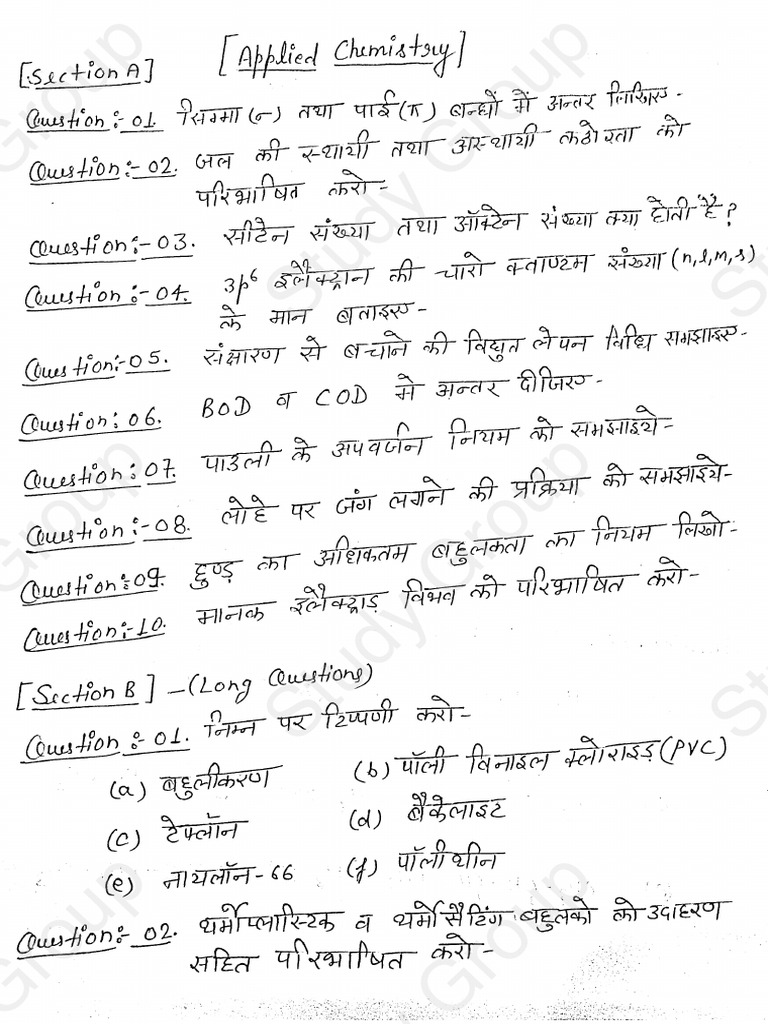 [Section A] [Applied Chemistry]
Question:-01. सिग्मा (σ) तथा पाई (π) बन्धों में अन्तर लिखिए-
Question:-02. जल की स्थायी तथा अस्थायी कठोरता को
परिभाषित करो-
Question:-03. सीटेन संख्या तथा ऑक्टेन संख्या क्या होती है?
Question:-04. 3p⁶ इलैक्ट्रान की चारो क्वाण्टम संख्या (n,l,m,s)
के मान बताइए-
Question:-05. संक्षारण से बचाने की विद्युत लेपन विधि समझाइए-
Question:06. BOD व COD मे अन्तर दीजिए-
Question:07. पाउली के अपवर्जन नियम को समझाइये-
Question:-08. लोहे पर जंग लगने की प्रक्रिया को समझाइये-
Question:09. हुण्ड़ का अधिकतम बहुलकता का नियम लिखो-
Question:-10. मानक इलैक्ट्राड़ विभव को परिभाषित करो-
[Section B] -(Long Questions)
Question:-01. निम्न पर टिप्पणी करो-
(a) बहुलीकरण (b) पॉली विनाइल क्लोराइड़ (PVC)
(c) टेफ्लॉन (d) बैकेलाइट
(e) नायलॉन-66 (f) पॉलीथीन
Question:-02. थर्मोप्लास्टिक व थर्मोसैटिंग बहुलको को उदाहरण
सहित परिभाषित करो-
Study Group